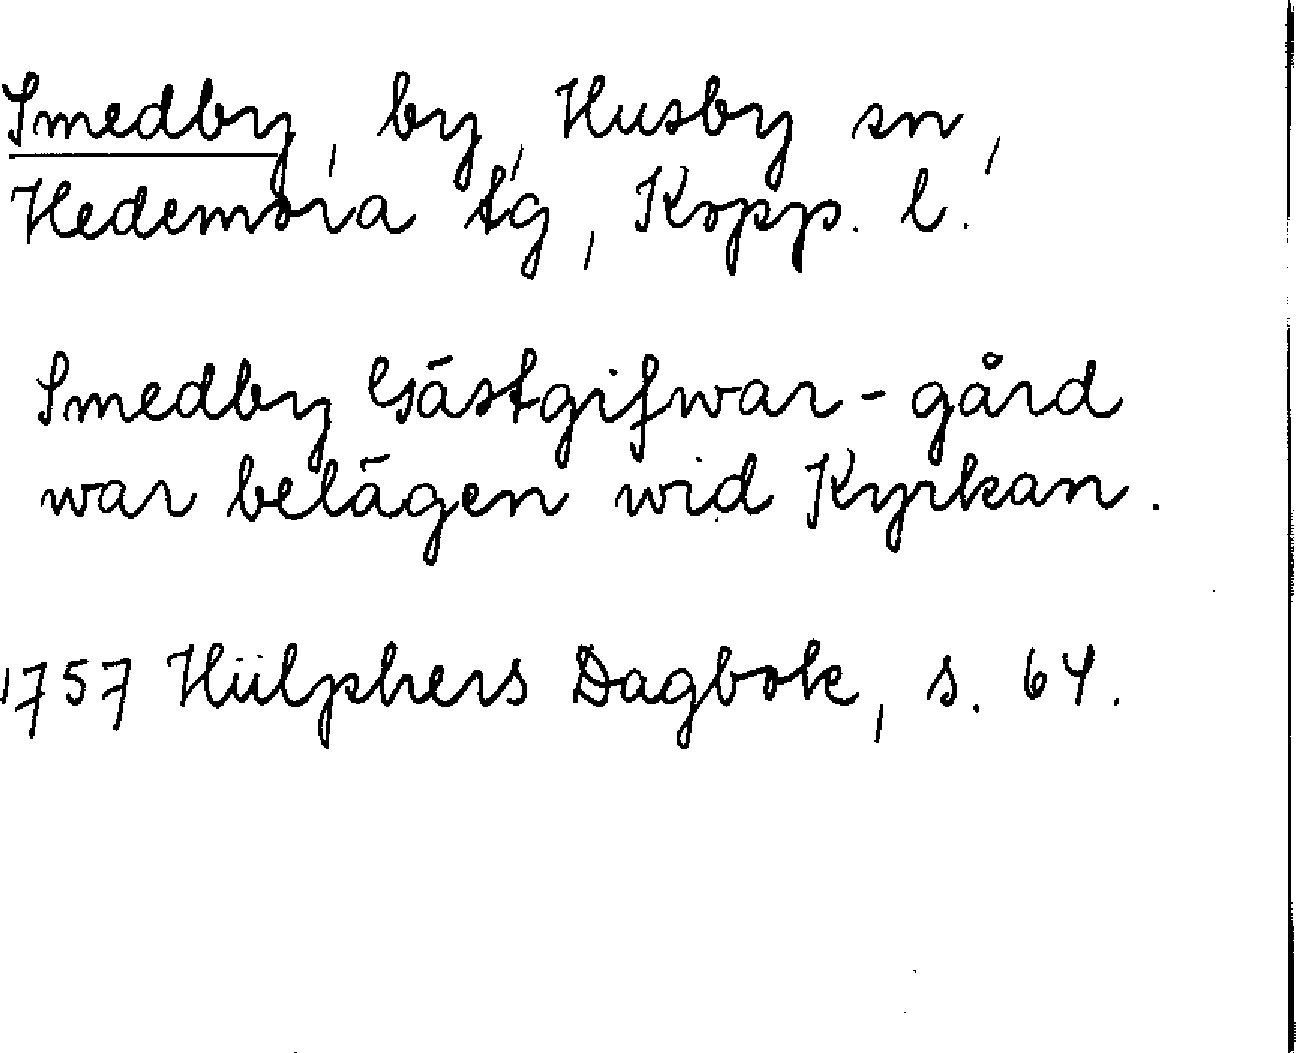 Smedby, by, Husby sn,
Hedemora tg, Kopp. l.
Smedby Gästgifwar-gård
war belägen wid Kyrkan.
1757 Hülphers Dagbok, s. 64.